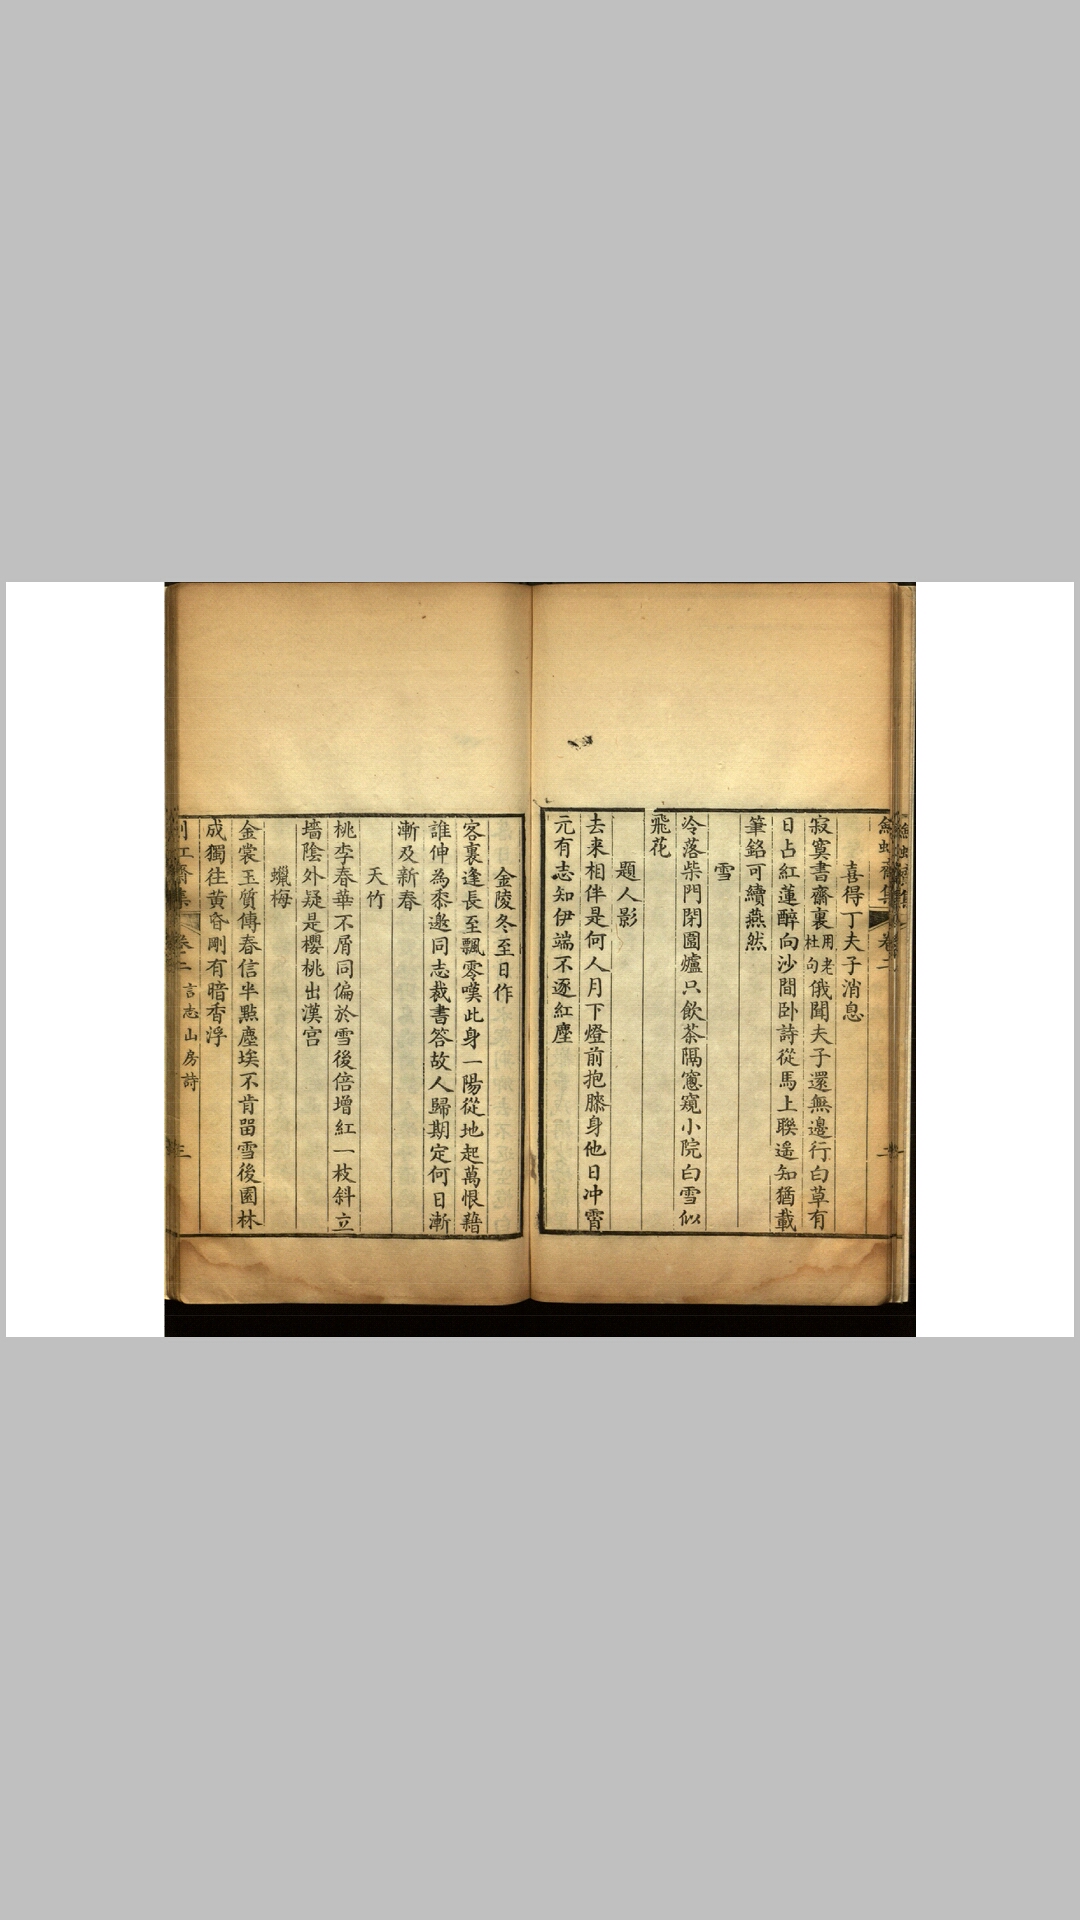 喜得丁夫子消息
寂寞書齋裏用老杜句俄聞夫子還無邊行白草有
日占紅蓮醉向沙間卧詩從馬上聯遥知猶載
筆銘可續燕然
雪
冷落柴門閉圍爐只飲茶隔窻窺小院白雪似
飛花
題人影
去来相伴是何人月下燈前抱膝身他日冲霄
元有志知伊端不逐紅塵
金陵冬至日作
客裏逢長至飄零嘆此身一陽從地起萬恨藉
誰伸為黍邀同志裁書答故人歸期定何日漸
漸及新春
天竹
桃李春華不屑同偏於雪後倍增紅一枝斜立
墻陰外疑是櫻桃出漢宫
蠟梅
金裳玉質傳春信半點塵埃不肯畱雪後園林
成獨往黄昏剛有暗香浮
齋集 卷二 言志山房詩 三